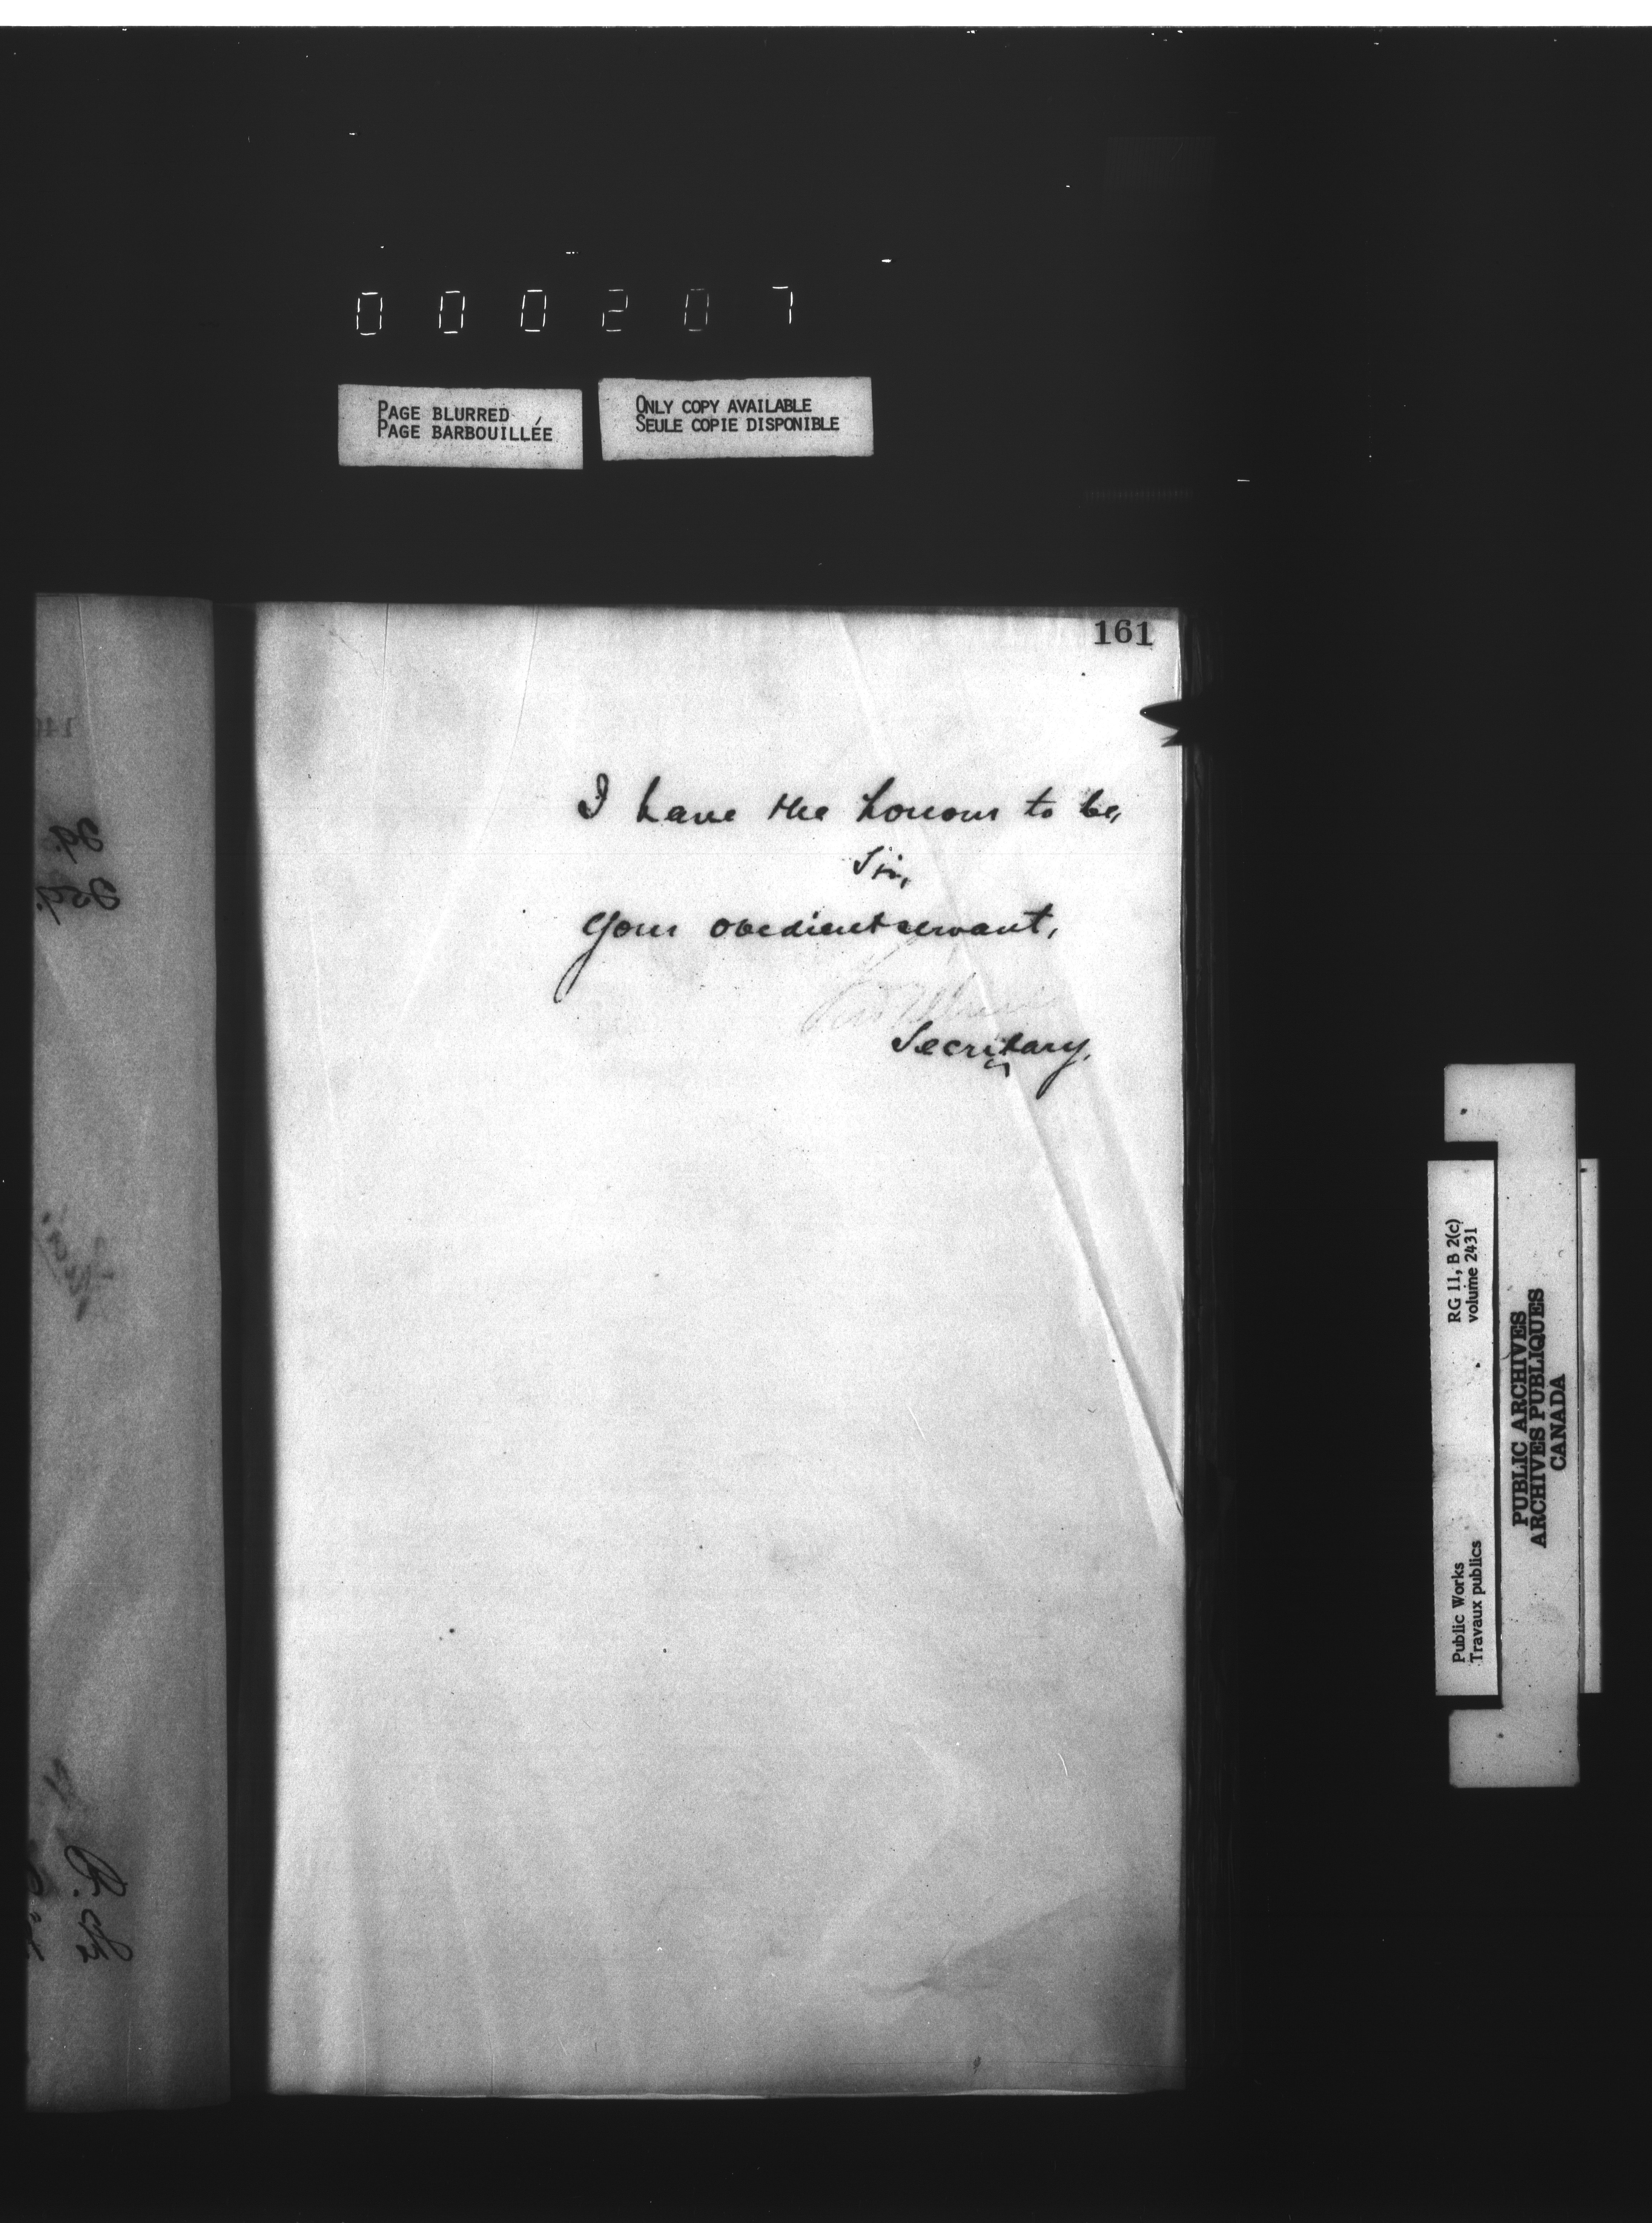 000207
PAGE BLURRED
PAGE BARBOUILLÉE
ONLY COPY AVAILABLE
SEULE COPIE DISPONIBLE
161
I have the honour to be,
Sir,
Your obedient servant,
Secretary.
RG 11, B 2(c)
volume 2431
Public Works
Travaux publics
PUBLIC ARCHIVES
ARCHIVES PUBLIQUES
CANADA